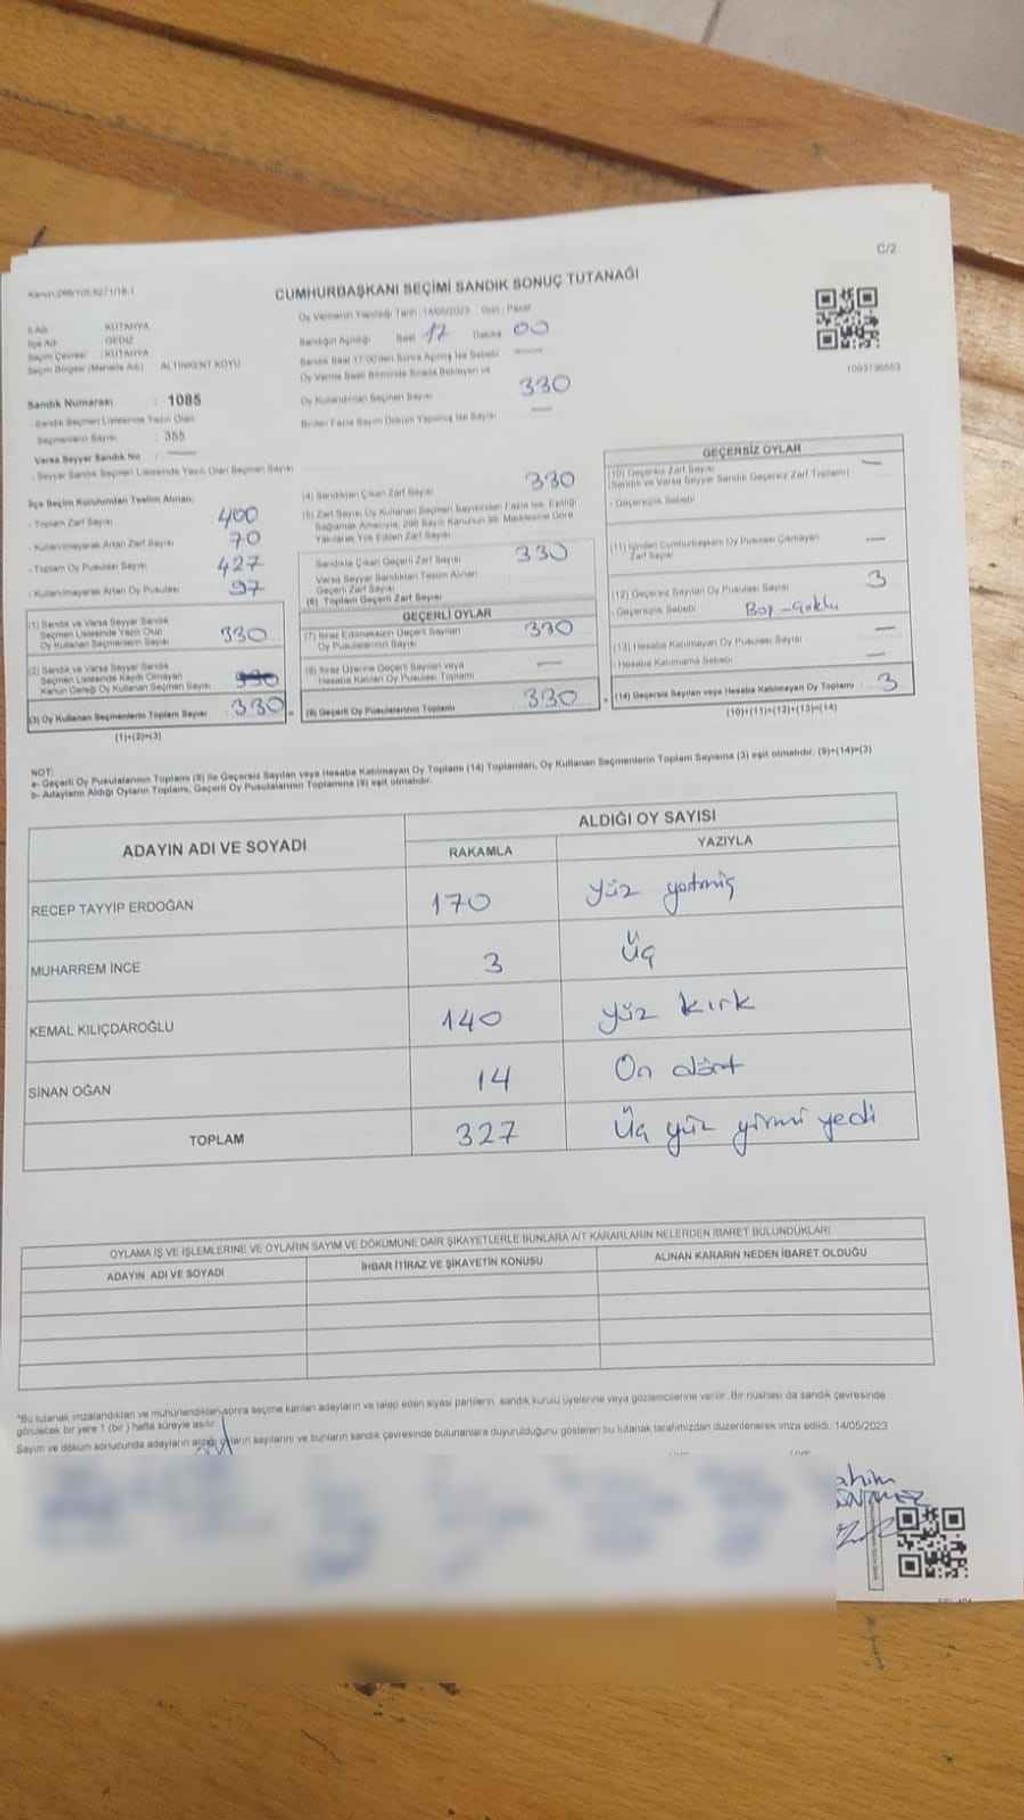 C/2
CUMHURBAŞKANI SEÇİMİ SANDIK SONUÇ TUTANAĞI
İli Adı : KÜTAHYA
İlçe Adı : GEDİZ
Seçim Çevresi : KÜTAHYA
Seçim Bölgesi (Mahalle Adı) : ALTINKENT KÖYÜ
Sandık Numarası : 1085
Sandık Seçmen Listesinde Yazılı Olan
Seçmenlerin Sayısı : 355
Varsa Seyyar Sandık No :
Seyyar Sandık Seçmen Listesinde Yazılı Olan Seçmen Sayısı
Oy Vermenin Yapıldığı Tarih : 14/05/2023 Gün : Pazar
Sandığın Açıldığı Saat 17 Dakika 00
Sandık Saat 17:00'den Sonra Açılmış İse Sebebi
Oy Verme Saati Bitiminde Sırada Bekleyen ve
Oy Kullandırılan Seçmen Sayısı 330
Birden Fazla Sayım Döküm Yapılmış İse Sayısı
1093196553
İlçe Seçim Kurulundan Teslim Alınan;
- Toplam Zarf Sayısı 400
- Kullanılmayarak Artan Zarf Sayısı 70
- Toplam Oy Pusulası Sayısı 427
- Kullanılmayarak Artan Oy Pusulası 97
(1) Sandık ve Varsa Seyyar Sandık
Seçmen Listesinde Yazılı Olup
Oy Kullanan Seçmenlerin Sayısı 330
(2) Sandık ve Varsa Seyyar Sandık
Seçmen Listesinde Kaydı Olmayan
Kanun Gereği Oy Kullanan Seçmen Sayısı
(3) Oy Kullanan Seçmenlerin Toplam Sayısı 330
(1)+(2)=(3)
(4) Sandıktan Çıkan Zarf Sayısı 330
(5) Zarf Sayısı Oy Kullanan Seçmen Sayısından Fazla İse, Eşitliği
Sağlamak Amacıyla, 298 Sayılı Kanunun 98. Maddesine Göre
Yakılarak Yok Edilen Zarf Sayısı
Sandıkta Çıkan Geçerli Zarf Sayısı 330
Varsa Seyyar Sandıktan Teslim Alınan
Geçerli Zarf Sayısı
(6) Toplam Geçerli Zarf Sayısı
GEÇERLİ OYLAR
(7) İtiraz Edilmeksizin Geçerli Sayılan
Oy Pusulalarının Sayısı 330
(8) İtiraz Üzerine Geçerli Sayılan veya
Hesaba Katılan Oy Pusulası Toplamı
(9) Geçerli Oy Pusulalarının Toplamı 330
GEÇERSİZ OYLAR
(10) Geçersiz Zarf Sayısı
(Sandık ve Varsa Seyyar Sandık Geçersiz Zarf Toplamı)
- Geçersizlik Sebebi
(11) İçinden Cumhurbaşkanı Oy Pusulası Çıkmayan
Zarf Sayısı
(12) Geçersiz Sayılan Oy Pusulası Sayısı 3
- Geçersizlik Sebebi
(13) Hesaba Katılmayan Oy Pusulası Sayısı
- Hesaba Katılmama Sebebi
(14) Geçersiz Sayılan veya Hesaba Katılmayan Oy Toplamı 3
(10)+(11)+(12)+(13)=(14)
NOT:
a- Geçerli Oy Pusulalarının Toplamı (9) ile Geçersiz Sayılan veya Hesaba Katılmayan Oy Toplamı (14) Toplamları, Oy Kullanan Seçmenlerin Toplam Sayısına (3) eşit olmalıdır. (9)+(14)=(3)
b- Adayların Aldığı Oyların Toplamı, Geçerli Oy Pusulalarının Toplamına (9) eşit olmalıdır.
ADAYIN ADI VE SOYADI
ALDIĞI OY SAYISI
RAKAMLA YAZIYLA
RECEP TAYYİP ERDOĞAN 170 yüz yetmiş
MUHARREM İNCE 3 Üç
KEMAL KILIÇDAROĞLU 140 yüz kırk
SİNAN OĞAN 14 On dört
TOPLAM 327 Üç yüz yirmi yedi
OYLAMA İŞ VE İŞLEMLERİNE VE OYLARIN SAYIM VE DÖKÜMÜNE DAİR ŞİKAYETLERLE BUNLARA AİT KARARLARIN NELERDEN İBARET BULUNDUKLARI
ADAYIN ADI VE SOYADI İHBAR İTİRAZ VE ŞİKAYETİN KONUSU ALINAN KARARIN NEDEN İBARET OLDUĞU
*Bu tutanak imzalandıktan ve mühürlendikten sonra seçime katılan adayların ve talep eden siyasi partilerin, sandık kurulu üyelerine veya gözlemcilerine verilir. Bir nüshası da sandık çevresinde
görülecek bir yere 1 (bir) hafta süreyle asılır.
Sayım ve döküm sonucunda adayların aldığı oyların sayılarını ve bunların sandık çevresinde bulunanlara duyurulduğunu gösteren bu tutanak tarafımızdan düzenlenerek imza edildi. 14/05/2023
ahim